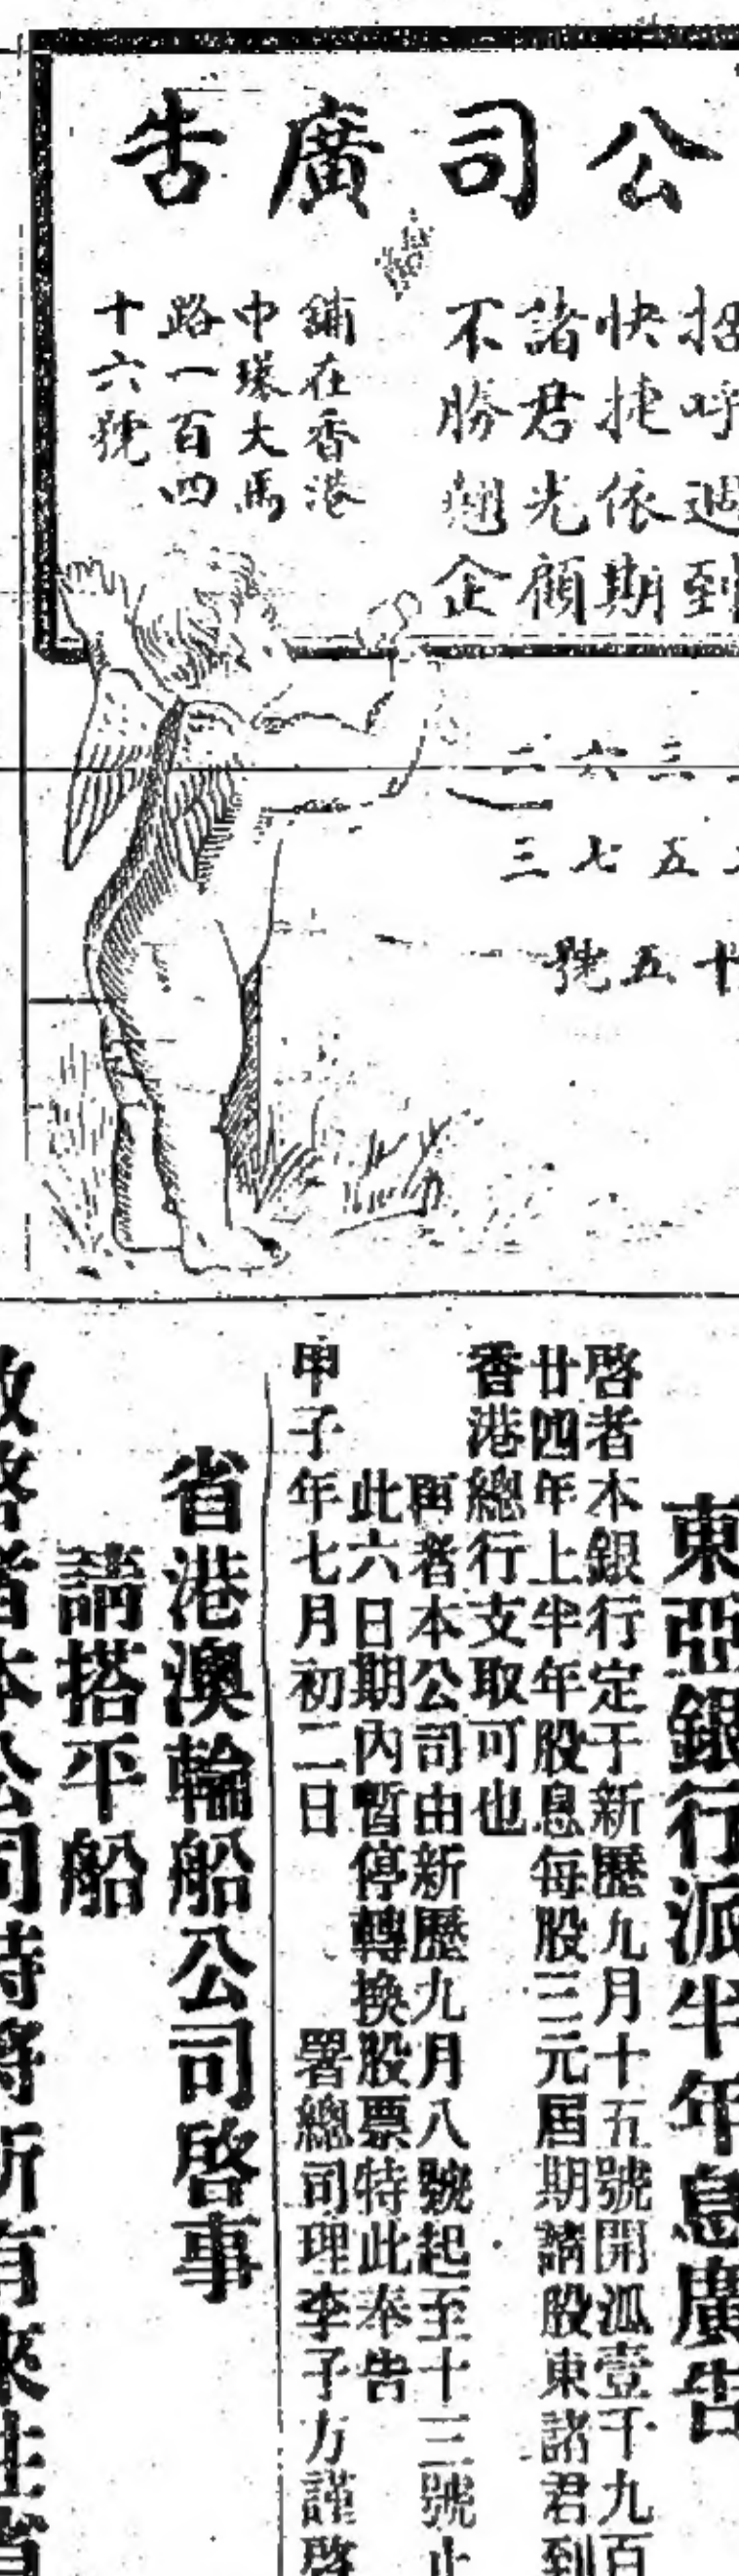 公司廣告
招呼週到
快捷依期
諸君光顧
不勝翹企
鋪在香港
中環大馬
路一百四
十六號
三六二
五七三
十五號
東亞銀行派半年息廣告
啓者本銀行定于新歷九月十五號開派壹千九百
廿四年上半年股息每股三元屆期請股東諸君到
香港總行支取可也
再者本公司由新歷九月八號起至十三號止
此六日期內暫停轉換股票特此奉告
甲子年七月初二日 署總司理李子方謹啓
省港澳輪船公司啓事
請搭平船
敬啓者本公司特將所有來往省